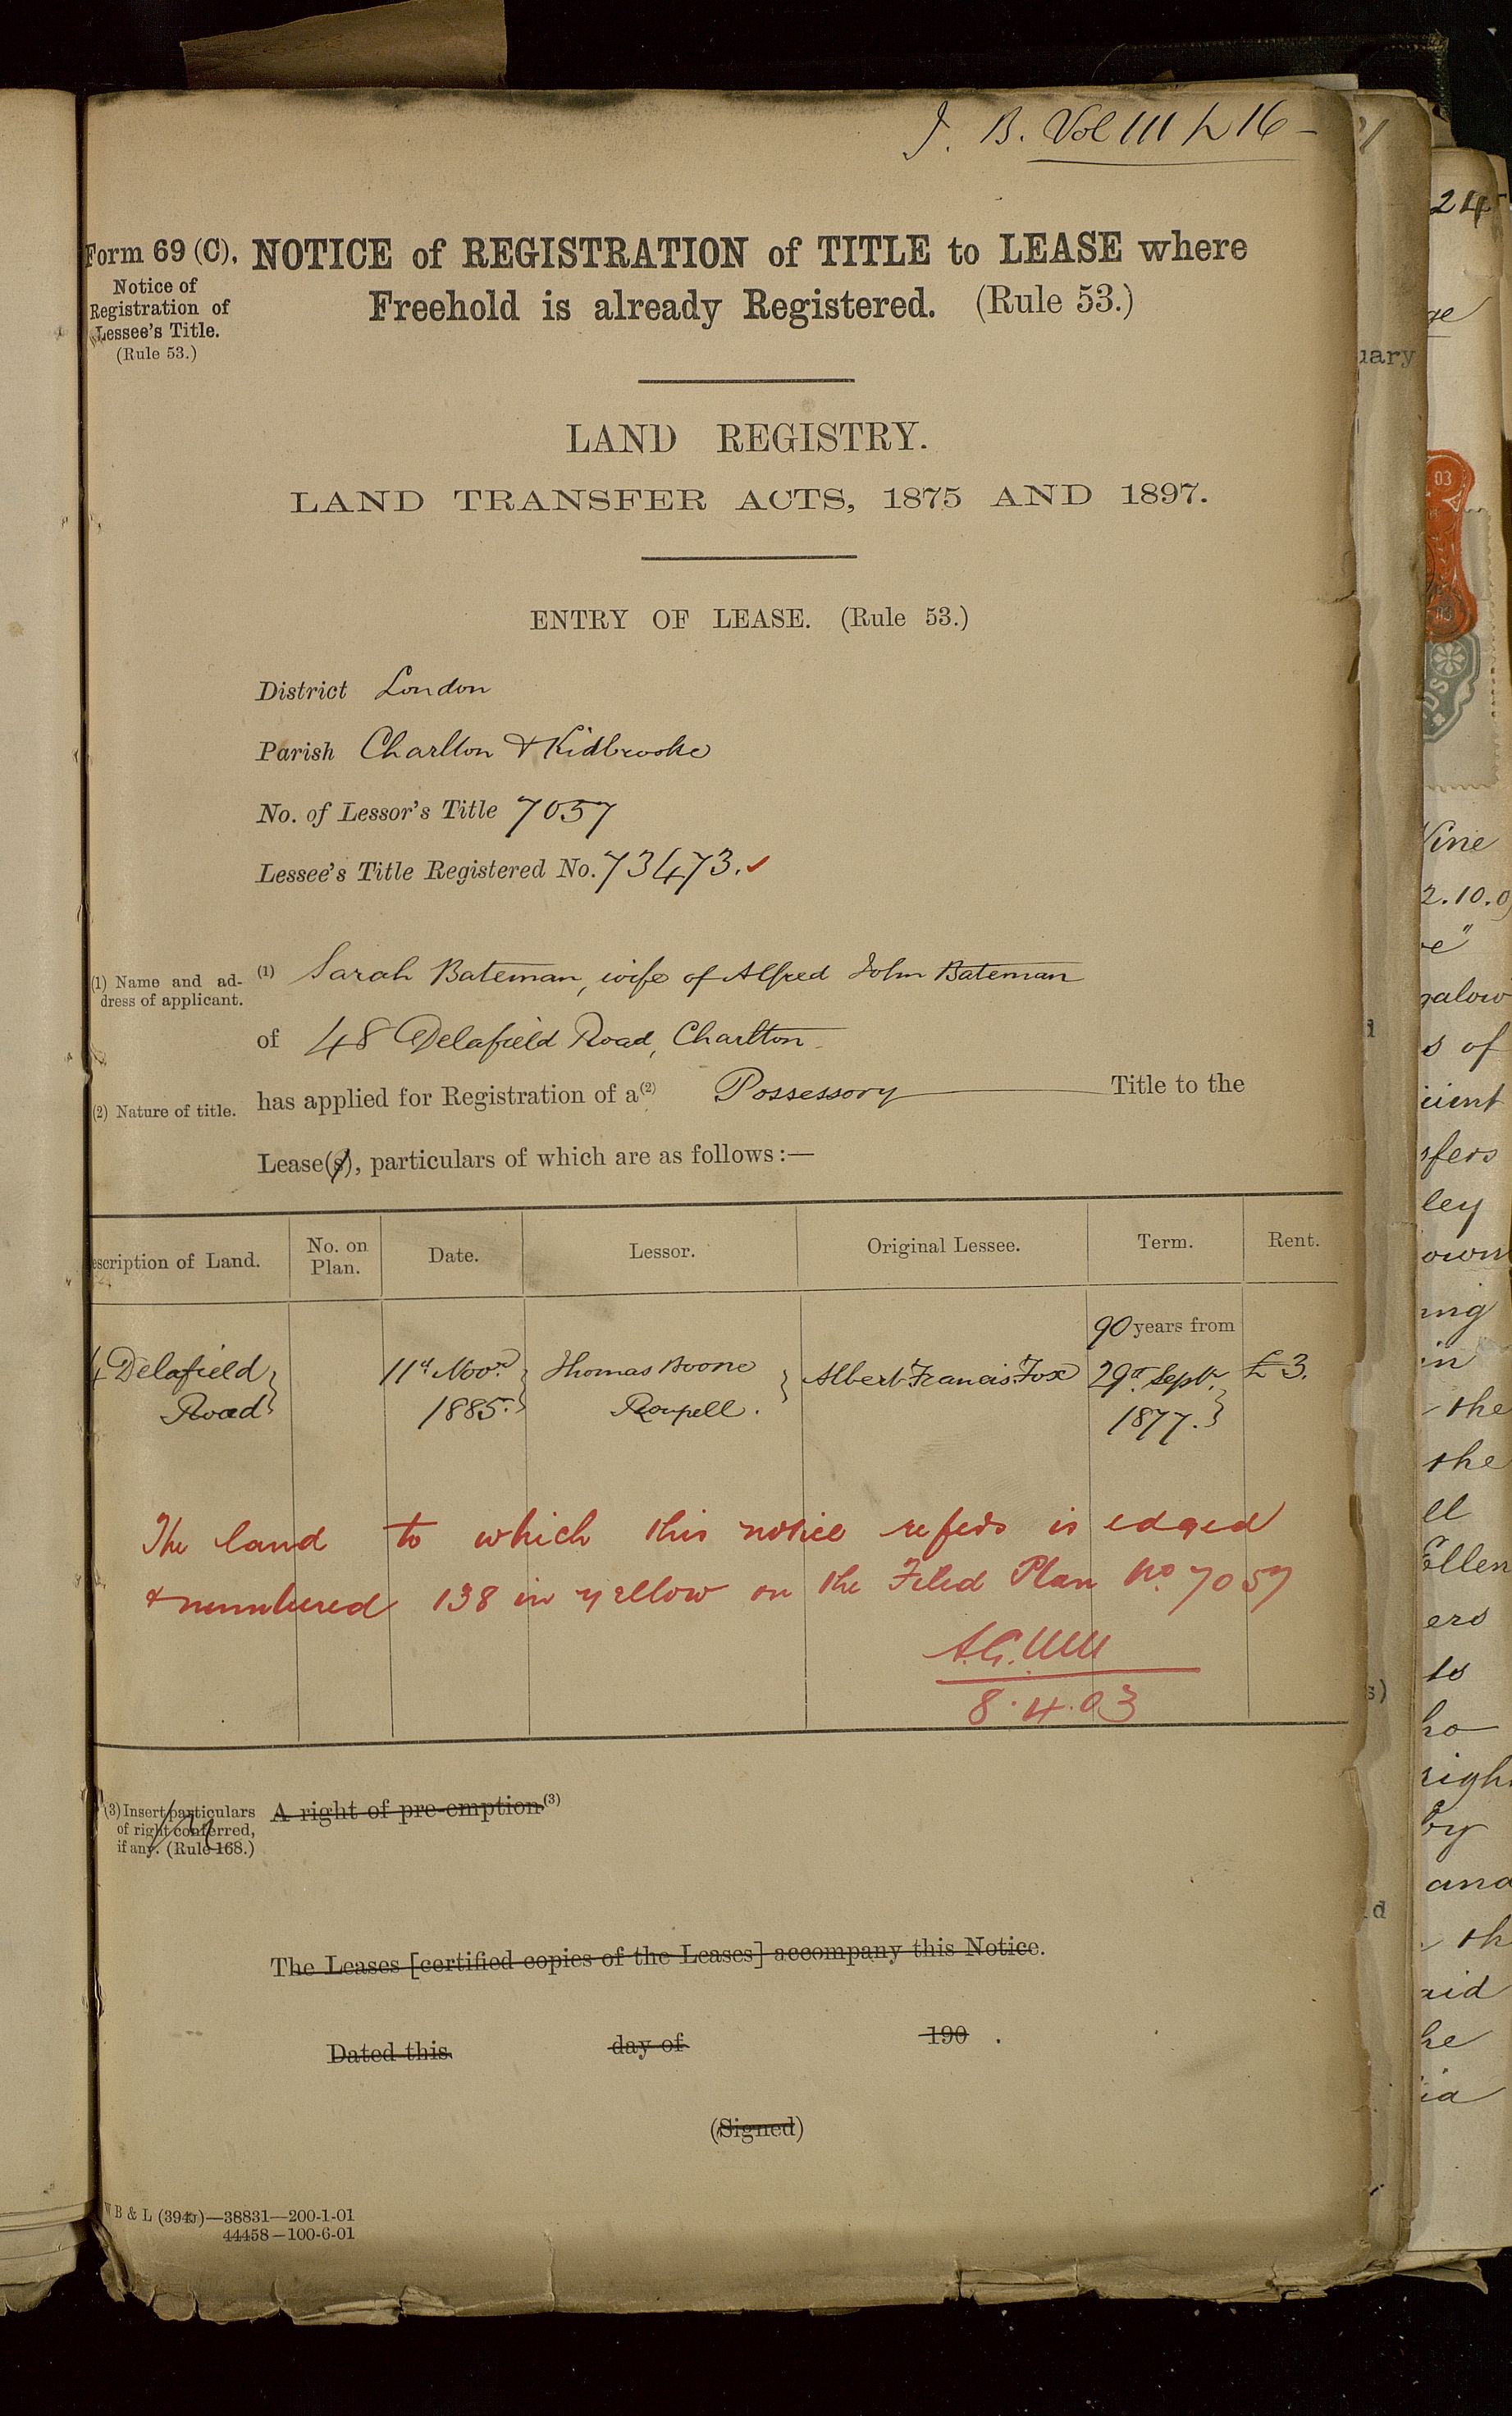 I. B. Vol III h 16 -
Form 69 (C). NOTICE of REGISTRATION of TITLE to LEASE where
Freehold is already Registered. (Rule 53.)
Notice of
Registration of
Lessee's Title.
(Rule 53.)
LAND REGISTRY.
LAND TRANSFER ACTS, 1875 AND 1897.
ENTRY OF LEASE. (Rule 53.)
District London
Parish Charlton & Kidbrooke
No. of Lessor's Title 7057
Lessee's Title Registered No. 73473.
(1) Name and ad-
dress of applicant.
(1) Sarah Bateman, wife of Alfred John Bateman
of 48 Delafield Road, Charlton
(2) Nature of title.
has applied for Registration of a (2) Possessory Title to the
Lease(s), particulars of which are as follows:—
escription of Land. No. on Plan. Date. Lessor. Original Lessee. Term. Rent.
90 years from
4 Delafield 11th Novr. Thomas Boone Albert Francis Fox 29th Septr. £3.
Road 1885. Roupell. 1877.
The land to which this notice refers is edged
& numbered 138 in yellow on the Filed Plan No. 7057
8.4.03
(3) Insert particulars
of right conferred,
if any. (Rule 168.)
A right of pre-emption (3)
The Leases [certified copies of the Leases] accompany this Notice.
Dated this day of 190 .
(Signed)
W B & L (394J)—38831—200-1-01
44458—100-6-01
24
uary
03
Vine
2.10.0
galow
s of
cient
sfers
ley
own
ing
in
the
the
ell
Ellen
ers
to
ho
righ
by
and
th
aid
he
ia